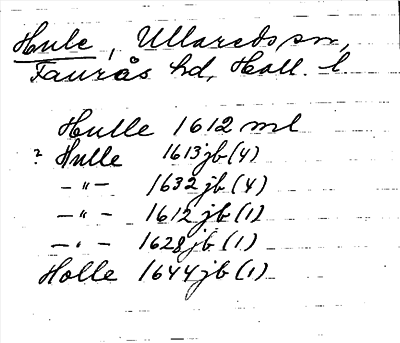 Hule, Ullareds sn,
Faurås hd, Hall. l.
Hulle 1612 ml
? Hulle 1613 jb (4)
– " – 1632 jb (4)
– " – 1612 jb (1)
– " – 1628 jb (1)
Holle 1644 jb (1)